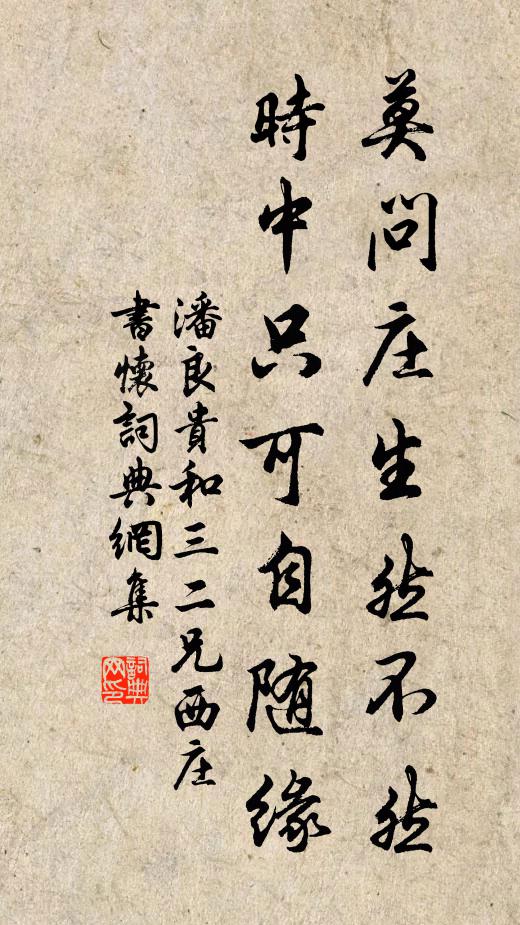 莫問庄生然不然
時中只可自随緣
潘良貴和三二兄西庄
書懷詞典網集
詞典
网印